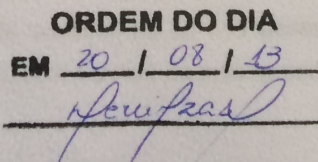 ORDEM DO DIA
EM 20 / 08 / 13